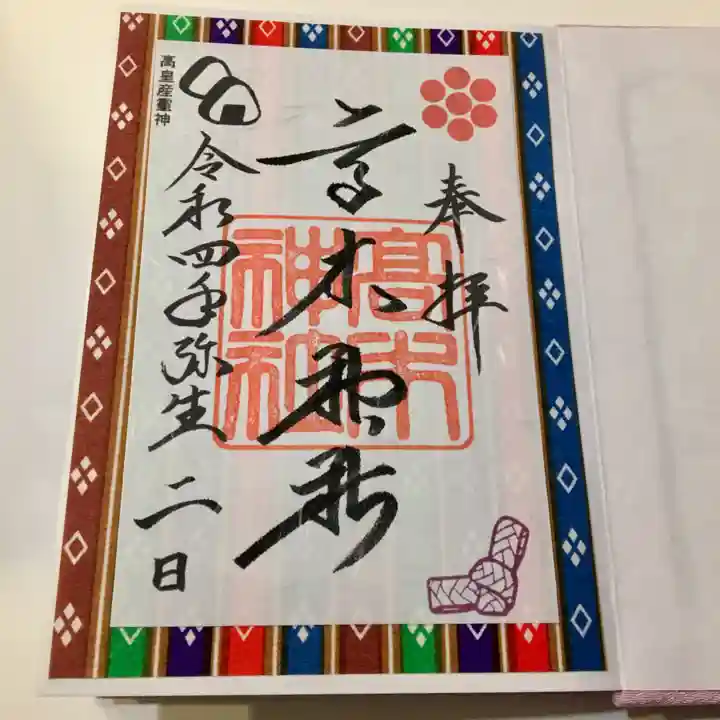 奉拝
高木神社
高木神社
令和四年弥生二日
高皇産霊神